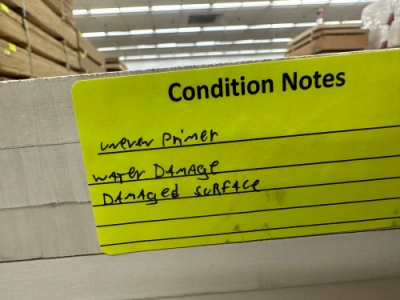 Condition Notes
uneven Primer
WATER DAMAGE
DAMAGED SURFACE